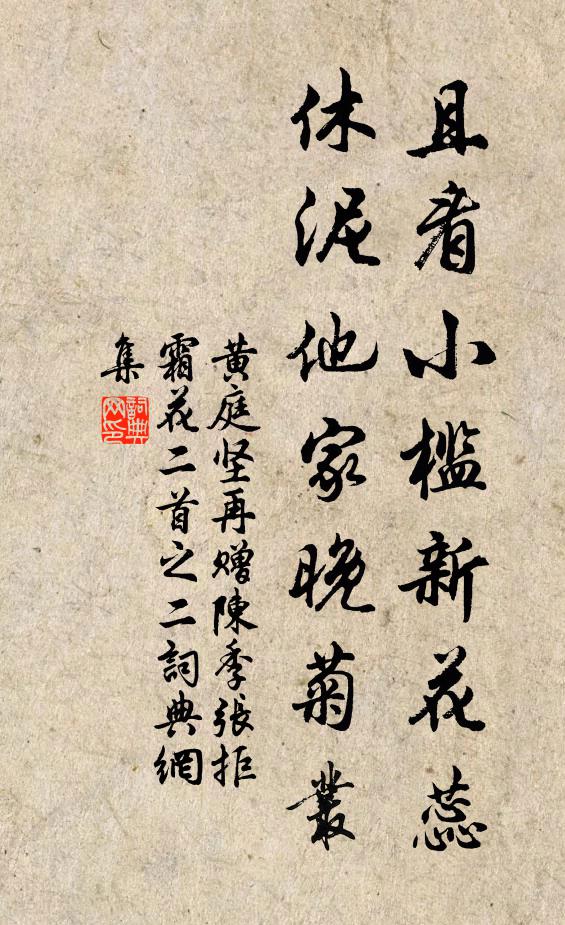 且看小槛新花蕊
休泥他家晚菊叢
黄庭坚再赠陳季張拒
霜花二首之二詞典網
集
詞典網印